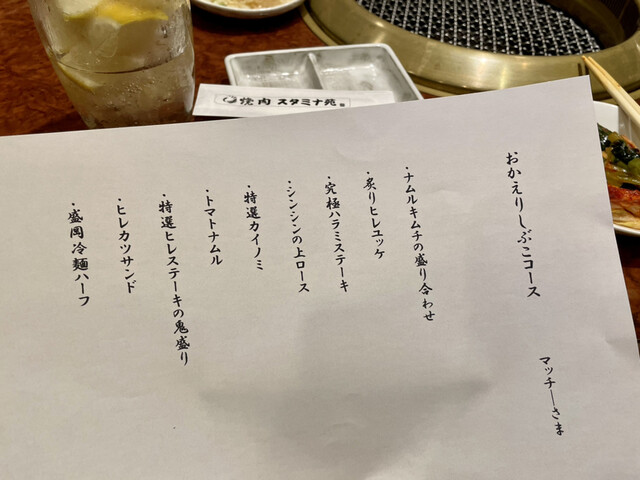 焼肉 スタミナ苑
おかえりしぶこコース
マッチーさま
・ナムルキムチの盛り合わせ
・炙りヒレユッケ
・究極ハラミステーキ
・シンシンの上ロース
・特選カイノミ
・トマトナムル
・特選ヒレステーキの鬼盛り
・ヒレカツサンド
・盛岡冷麺ハーフ